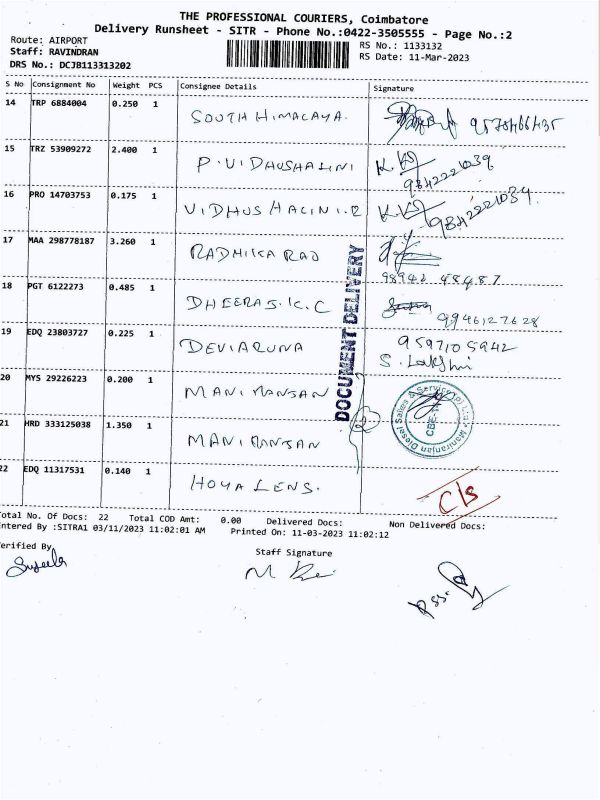 THE PROFESSIONAL COURIERS, Coimbatore
Delivery Runsheet - SITR - Phone No.:0422-3505555 - Page No.:2
Route: AIRPORT
Staff: RAVINDRAN
DRS No.: DCJB113313202
RS No.: 1133132
RS Date: 11-Mar-2023
S No Consignment No Weight PCS Consignee Details Signature
14 TRP 6884004 0.250 1 SOUTH HIMALAYA.
15 TRZ 53909272 2.400 1 P. VIDHUSHALINI 9842221039
16 PRO 14703753 0.175 1 VIDHUSHALINI.R 9842221039.
17 MAA 298778187 3.260 1 RADHIKA RAO
98942 48487
18 PGT 6122273 0.485 1 DHEERAJ.K.C 9946127628
19 EDQ 23803727 0.225 1 DEVIARUNA 9597105942
S. Lakshmi
20 MYS 29226223 0.200 1 MANIRANJAN
21 HRD 333125038 1.350 1 MANIRANJAN
22 EDQ 11317531 0.140 1 HOYA LENS. C/s
DOCUMENT DELIVERY
Maniranjan Diesel Sales & Service
Total No. Of Docs: 22 Total COD Amt: 0.00 Delivered Docs: Non Delivered Docs:
Entered By :SITRA1 03/11/2023 11:02:01 AM Printed On: 11-03-2023 11:02:12
Verified By
Staff Signature